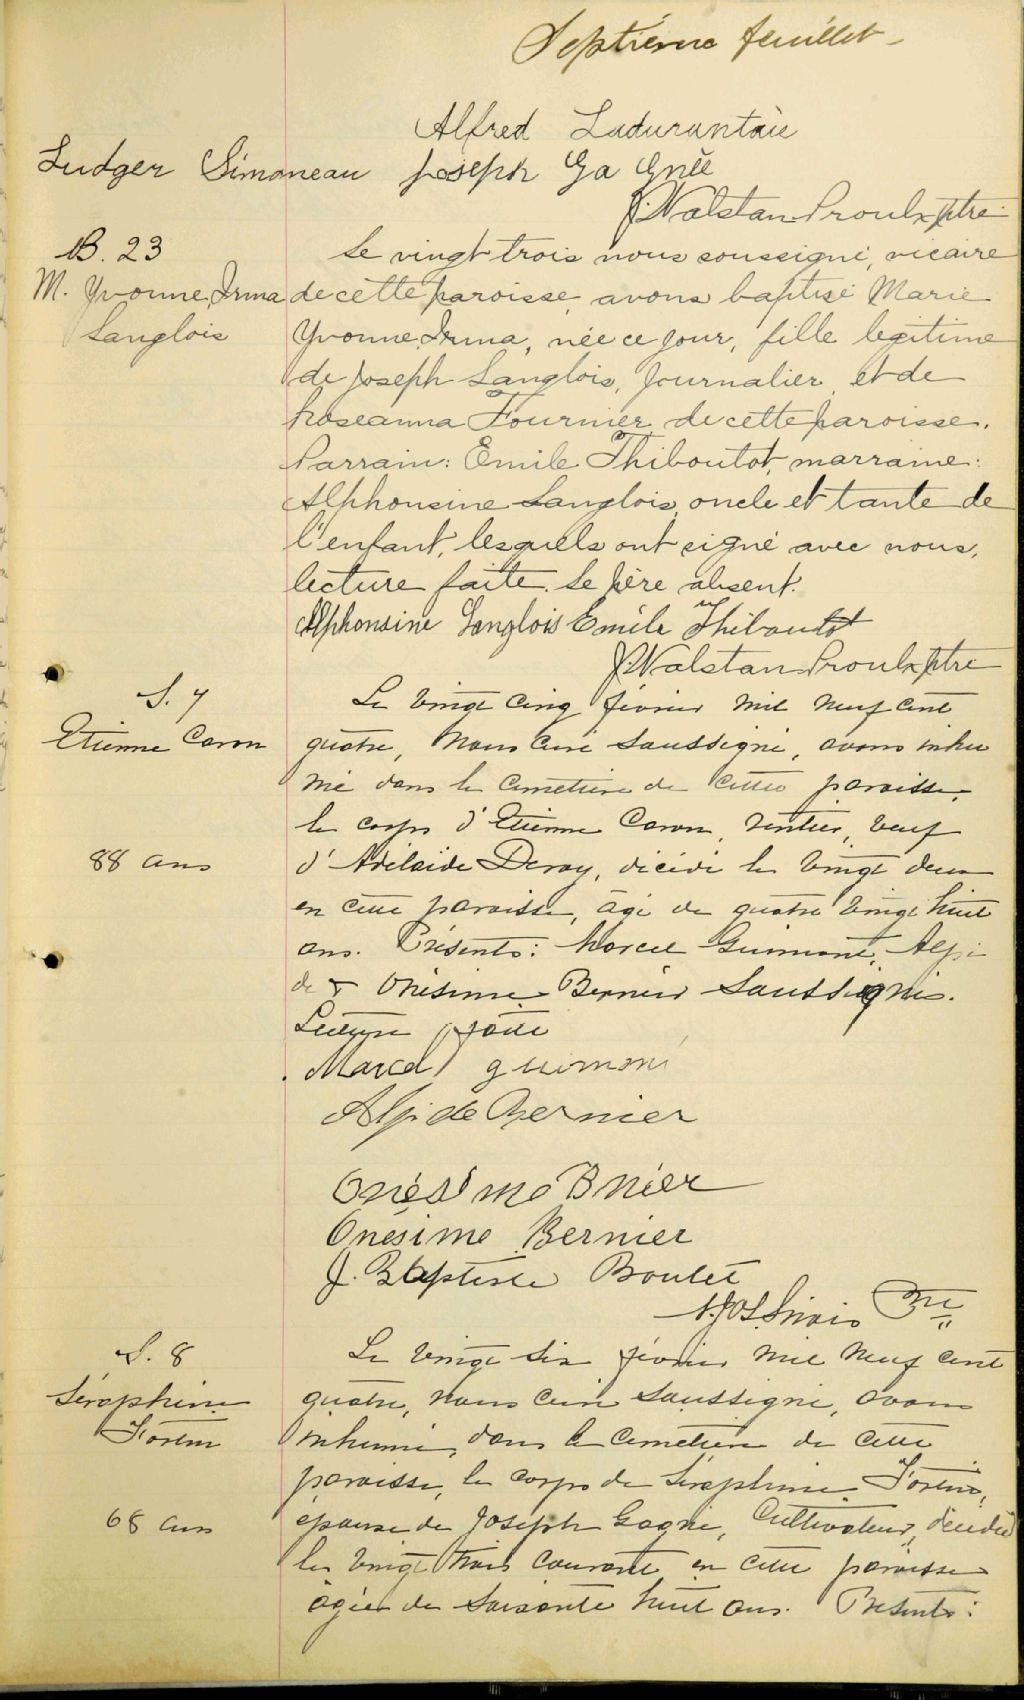 Septième feuillet -
Alfred Ladurantaie
Ludger Simoneau Joseph Ga Gnée
J. Walstan Proulx, ptre.
B. 23
M. Yvonne, Irma
Langlois
Le vingt trois nous soussigné, vicaire
de cette paroisse, avons baptisé Marie
Yvonne, Irma, née ce jour, fille légitime
de Joseph Langlois, journalier, et de
Roseanna Fournier de cette paroisse.
Parrain: Emile Thiboutot, marraine:
Alphonsine Langlois, oncle et tante de
l'enfant, lesquels ont signé avec nous,
lecture faite. Le père absent.
Alphonsine Langlois Emile Thiboutot
J. Walstan Proulx, ptre
S. 7
Etienne Caron
88 ans
Le vingt cinq février mil neuf cent
quatre, nous curé soussigné, avons inhu
mé dans le cimetière de cette paroisse,
le corps d'Etienne Caron, rentier, veuf
d'Adélaïde Deroy, décédé le vingt deux
en cette paroisse, âgé de quatre vingt huit
ans. Présents: Marcel Guimont, Alpi
de & Onésime Bernier soussignés.
Lecture faite
Marcel guimont
Alpide Bernier
Onésime Bnier
Onésime Bernier
J. Baptiste Boulet
Ptre
S. 8
Séraphine
Fortin
68 ans
Le vingt six février mil neuf cent
quatre, nous curé soussigné, avons
inhumé, dans le cimetière de cette
paroisse, le corps de Séraphine Fortin,
épouse de Joseph Gagné, cultivateur, décédée
le vingt trois courant en cette paroisse
âgée de soixante huit ans. Présents: